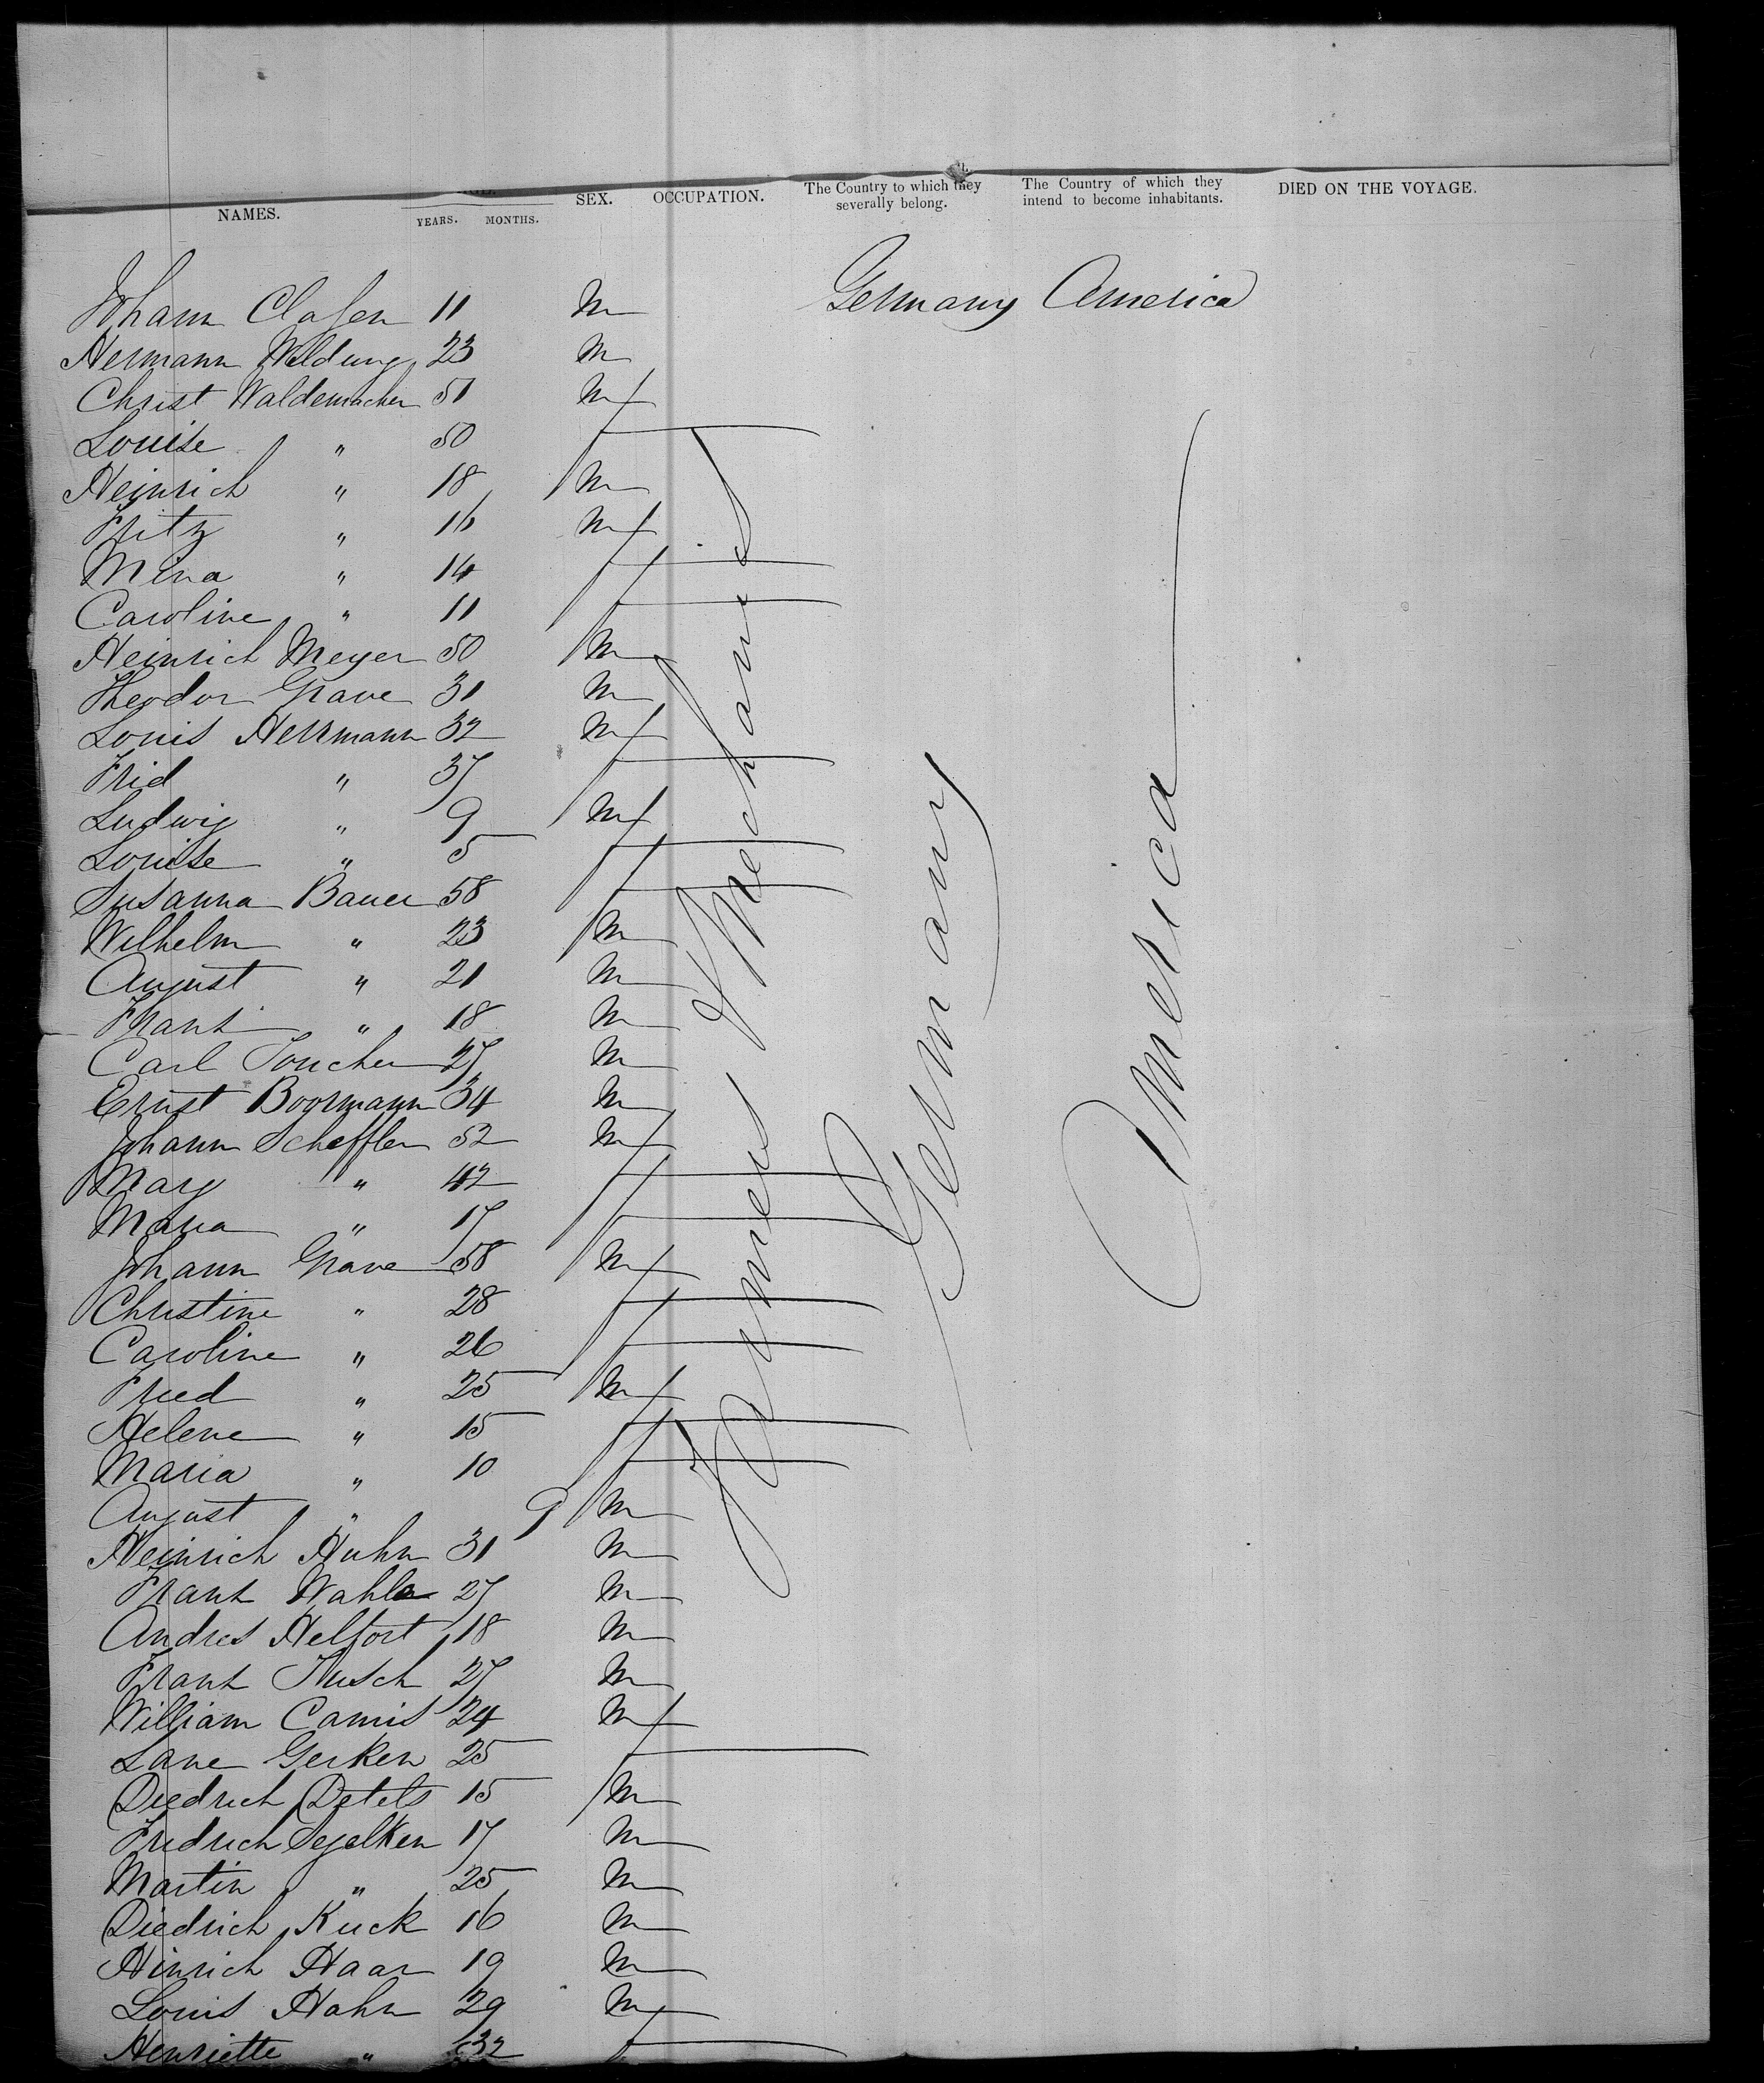 NAMES. YEARS. MONTHS. SEX. OCCUPATION. The Country to which they severally belong. The Country of which they intend to become inhabitants. DIED ON THE VOYAGE.
Johann Clasen 11 m Germany America
Hermann Wildung 23 m
Christ Waldemacher 51 m
Louise " 50 f
Heinrich " 18 m
Fritz " 16 m
Mina " 14 f
Caroline " 11 f
Heinrich Meyer 50 m
Theodor Grave 31 m
Louis Herrmann 32 m
Frid " 37 f
Ludwig " 9 m
Louise " 5 f
Susanna Bauer 58 f
Wilhelm " 23 m
August " 21 m
Franz " 18 m
Carl 27 m
Ernst Boormann 34 m
Johann Scheffler 52 m
Mary " 42 f
Maria " 17 f
Johann Grave 58 m
Christine " 28 f
Caroline " 26 f
Fried " 25 m
Helene " 15 f
Maria " 10 f
August " 9 m
Heinrich Huhn 31 m
Franz Wahle 27 m
Andres Helfort 18 m
Franz 27 m
William Camis 24 m
Lane Gerken 25 f
Diedrich Detels 15 m
Fridrich Segelken 17 m
Martin " 25 m
Diedrich Kuck 16 m
Hinrich Haar 19 m
Louis Hahn 29 m
Henriette " 32 f
Farmers & Mechanics
Germany
America